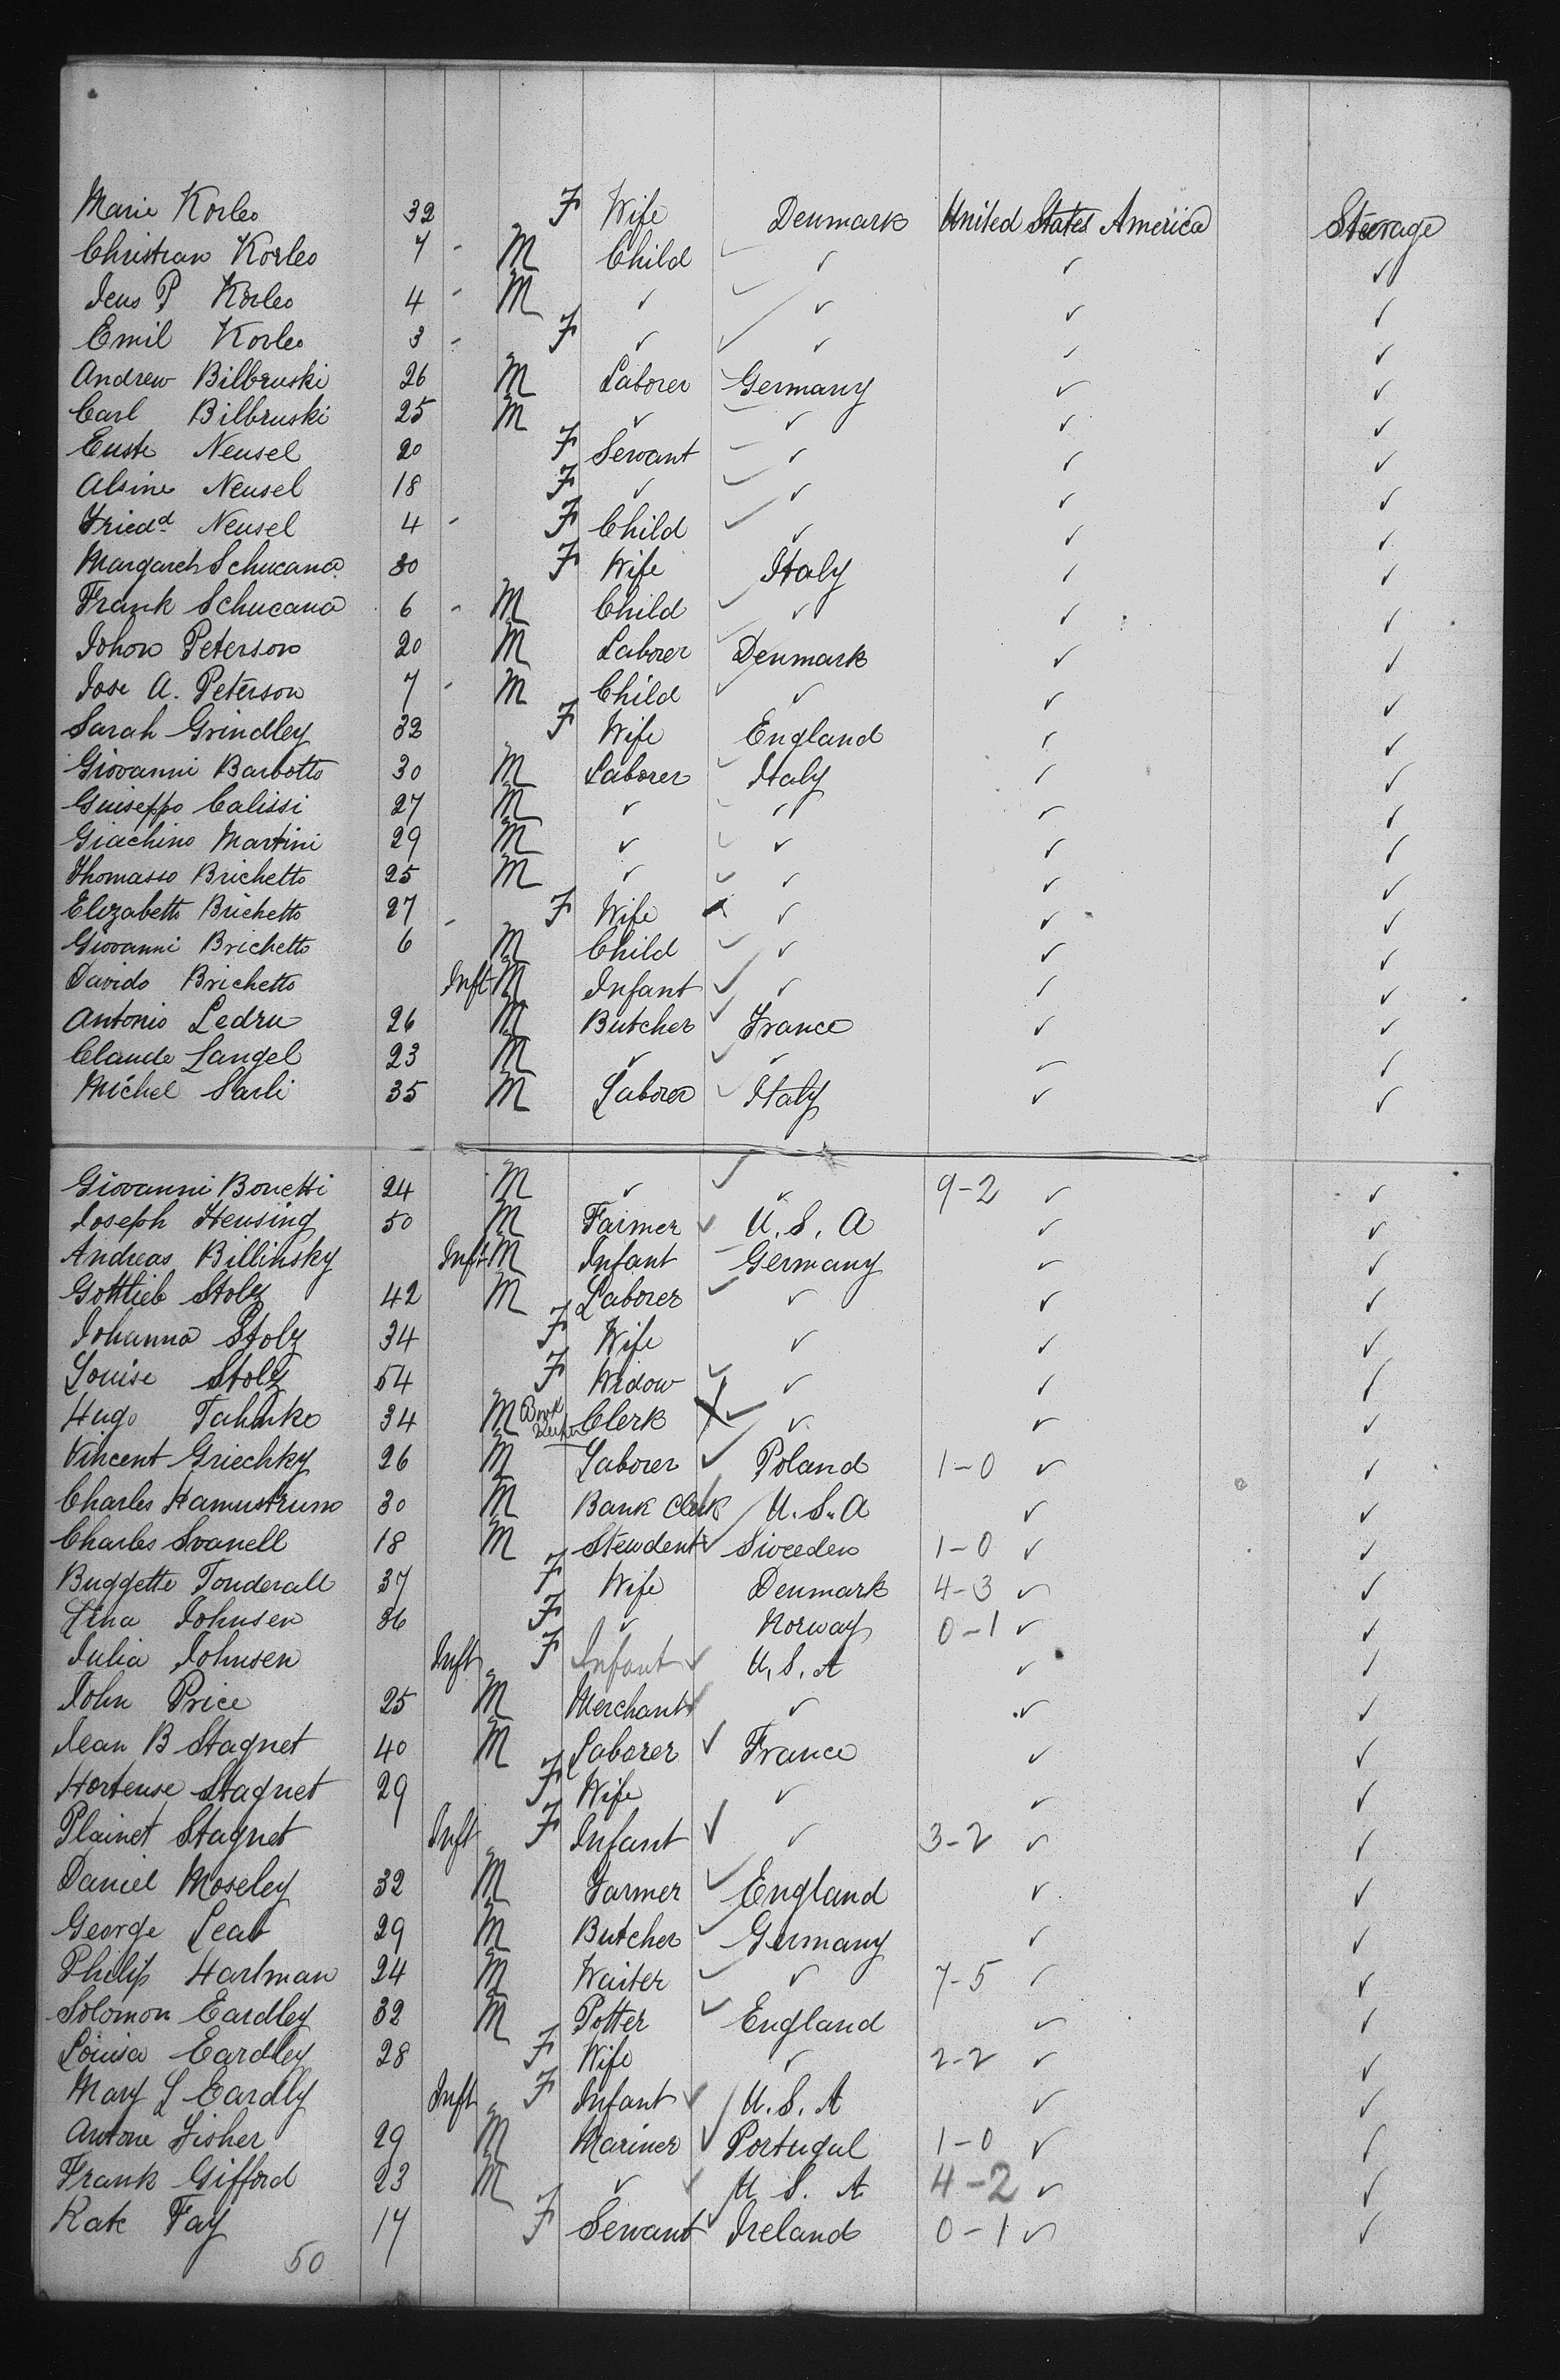 Marie Korleo 32 F Wife Denmark United States America Steerage
Christian Korleo 7 - M Child ✓ ✓ ✓
Jens P Korleo 4 - M ✓ ✓ ✓ ✓
Emil Korleo 3 - F ✓ ✓ ✓ ✓
Andrew Bilbruski 26 M Laborer Germany ✓ ✓
Carl Bilbruski 25 M ✓ ✓ ✓ ✓
Euste Neusel 20 F Servant ✓ ✓ ✓
Alsine Neusel 18 F ✓ ✓ ✓ ✓
Friedd Neusel 4 - F Child ✓ ✓ ✓
Margareh Schucana 30 F Wife Italy ✓ ✓
Frank Schucana 6 - M Child ✓ ✓ ✓
Johon Peterson 20 M Laborer Denmark ✓ ✓
Jose A. Peterson 7 - M Child ✓ ✓ ✓
Sarah Grindley 32 F Wife England ✓ ✓
Giovanni Barbotto 30 M Laborer Italy ✓ ✓
Guiseppo Calissi 27 M ✓ ✓ ✓ ✓
Giachino Martini 29 M ✓ ✓ ✓ ✓
Thomasso Brichetto 25 M ✓ ✓ ✓ ✓
Elizabetto Brichetto 27 F Wife ✓ ✓ ✓
Giovanni Brichetto 6 - M Child ✓ ✓ ✓
Davido Brichetto Inft M Infant ✓ ✓ ✓
Antonio Ledru 26 M Butcher France ✓ ✓
Claude Langel 23 M ✓ ✓ ✓ ✓
Michel Sarli 35 M Laborer Italy ✓ ✓
Giovanni Bonetti 24 M ✓ ✓ 9-2 ✓ ✓
Joseph Hensing 50 M Farmer U. S. A ✓ ✓
Andreas Billinsky Inft M Infant Germany ✓ ✓
Gottlieb Stolz 42 M Laborer ✓ ✓ ✓
Johanna Stolz 34 F Wife ✓ ✓ ✓
Louise Stolz 54 F Widow ✓ ✓ ✓
Hugo Tahnke 34 M Book Keeper Clerk ✓ ✓ ✓
Vincent Griechky 26 M Laborer Poland 1-0 ✓ ✓
Charles Hamustrum 30 M Bank Clerk U. S. A ✓ ✓
Charles Svanell 18 M Stewdent Sweeden 1-0 ✓ ✓
Buggette Tonderall 37 F Wife Denmark 4-3 ✓ ✓
Lina Johnsen 36 F ✓ Norway 0-1 ✓ ✓
Julia Johnsen Inft F Infant U. S. A ✓ ✓
John Price 25 M Merchant ✓ ✓ ✓
Jean B Stagnet 40 M Laborer France ✓ ✓
Hortense Stagnet 29 F Wife ✓ ✓ ✓
Plainet Stagnet Inft F Infant ✓ 3-2 ✓ ✓
Daniel Moseley 32 M Farmer England ✓ ✓
George Leab 29 M Butcher Germany ✓ ✓
Philip Hartman 24 M Waiter ✓ 7-5 ✓ ✓
Solomon Eardley 32 M Potter England ✓ ✓
Louisa Eardley 28 F Wife ✓ 2-2 ✓ ✓
Mary L Eardly Inft F Infant U. S. A ✓ ✓
Antone Fisher 29 M Mariner Portugal 1-0 ✓ ✓
Frank Gifford 23 M ✓ U S. A 4-2 ✓ ✓
Kate Fay 17 F Servant Ireland 0-1 ✓ ✓
50